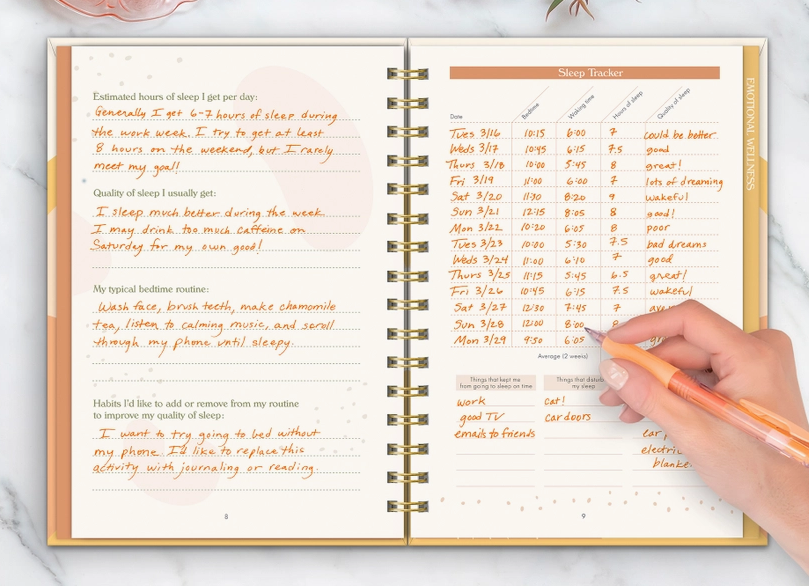 Estimated hours of sleep I get per day:
Generally I get 6-7 hours of sleep during
the work week. I try to get at least
8 hours on the weekend, but I rarely
meet my goal!
Quality of sleep I usually get:
I sleep much better during the week.
I may drink too much caffeine on
Saturday for my own good!
My typical bedtime routine:
Wash face, brush teeth, make chamomile
tea, listen to calming music, and scroll
through my phone until sleepy.
Habits I'd like to add or remove from my routine
to improve my quality of sleep:
I want to try going to bed without
my phone. I'd like to replace this
activity with journaling or reading.
8
Sleep Tracker
Date Bedtime Waking time Hours of sleep Quality of sleep
Tues 3/16 10:15 6:00 7 could be better
Weds 3/17 10:45 6:15 7.5 good
Thurs 3/18 10:00 5:45 8 great!
Fri 3/19 11:00 6:00 7 lots of dreaming
Sat 3/20 11:30 8:20 9 wakeful
Sun 3/21 12:15 8:05 8 good!
Mon 3/22 10:20 6:05 8 poor
Tues 3/23 10:00 5:30 7.5 bad dreams
Weds 3/24 11:00 6:10 7 good
Thurs 3/25 11:15 5:45 6.5 great!
Fri 3/26 10:45 6:15 7.5 wakeful
Sat 3/27 12:30 7:45 7
Sun 3/28 12:00 8:00
Mon 3/29 9:30 6:05
Average (2 weeks)
Things that kept me
from going to sleep on time
work
good TV
emails to friends
Things that
my sleep
cat!
car doors
9
EMOTIONAL WELLNESS